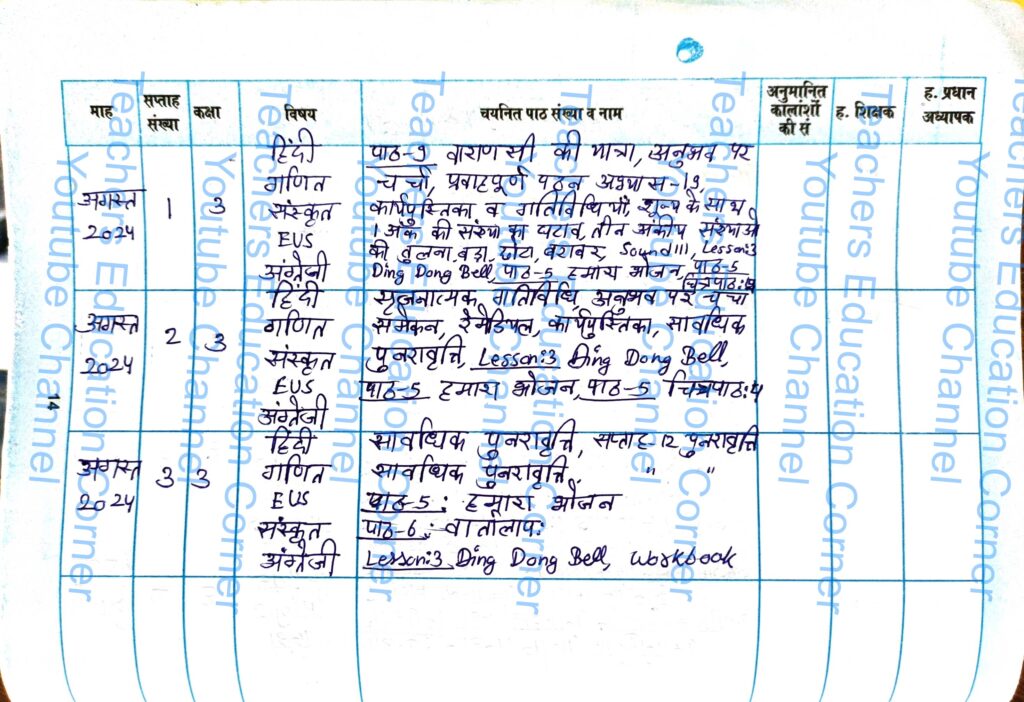 माह सप्ताह संख्या कक्षा विषय चयनित पाठ संख्या व नाम अनुमानित कालांशों की सं ह. शिक्षक ह. प्रधान अध्यापक
हिंदी पाठ-9 वाराणसी की यात्रा, अनुभव पर
गणित चर्चा, प्रवाहपूर्ण पठन अभ्यास-19,
अगस्त 1 3 संस्कृत कार्यपुस्तिका व गतिविधियाँ, शून्य के साथ
2024 EVS 1 अंक की संख्या का घटाव, तीन अंकीय संख्याओं
की तुलना, बड़ा, छोटा, बराबर, Sound 111, Lesson:3
अंग्रेजी Ding Dong Bell, पाठ-5 हमारा भोजन, पाठ-5
चित्रपाठ:4
हिंदी सृजनात्मक गतिविधि अनुभव पर चर्चा
अगस्त 2 3 गणित समेकन, रेमेडियल, कार्यपुस्तिका, सावधिक
2024 संस्कृत पुनरावृत्ति, Lesson:3 Ding Dong Bell,
EVS पाठ-5 हमारा भोजन, पाठ-5 चित्रपाठ:4
अंग्रेजी
हिंदी सावधिक पुनरावृत्ति, सप्ताह-12 पुनरावृत्ति
अगस्त 3 3 गणित सावधिक पुनरावृत्ति, " "
2024 EVS पाठ-5: हमारा भोजन
संस्कृत पाठ-6: वार्तालाप:
अंग्रेजी Lesson:3 Ding Dong Bell, Workbook
14
Teachers Education Corner
Youtube Channel
Teachers Education Corner
Youtube Channel
Teachers Education Corner
Youtube Channel
Teachers Education Corner
Youtube Channel
Teachers Education Corner